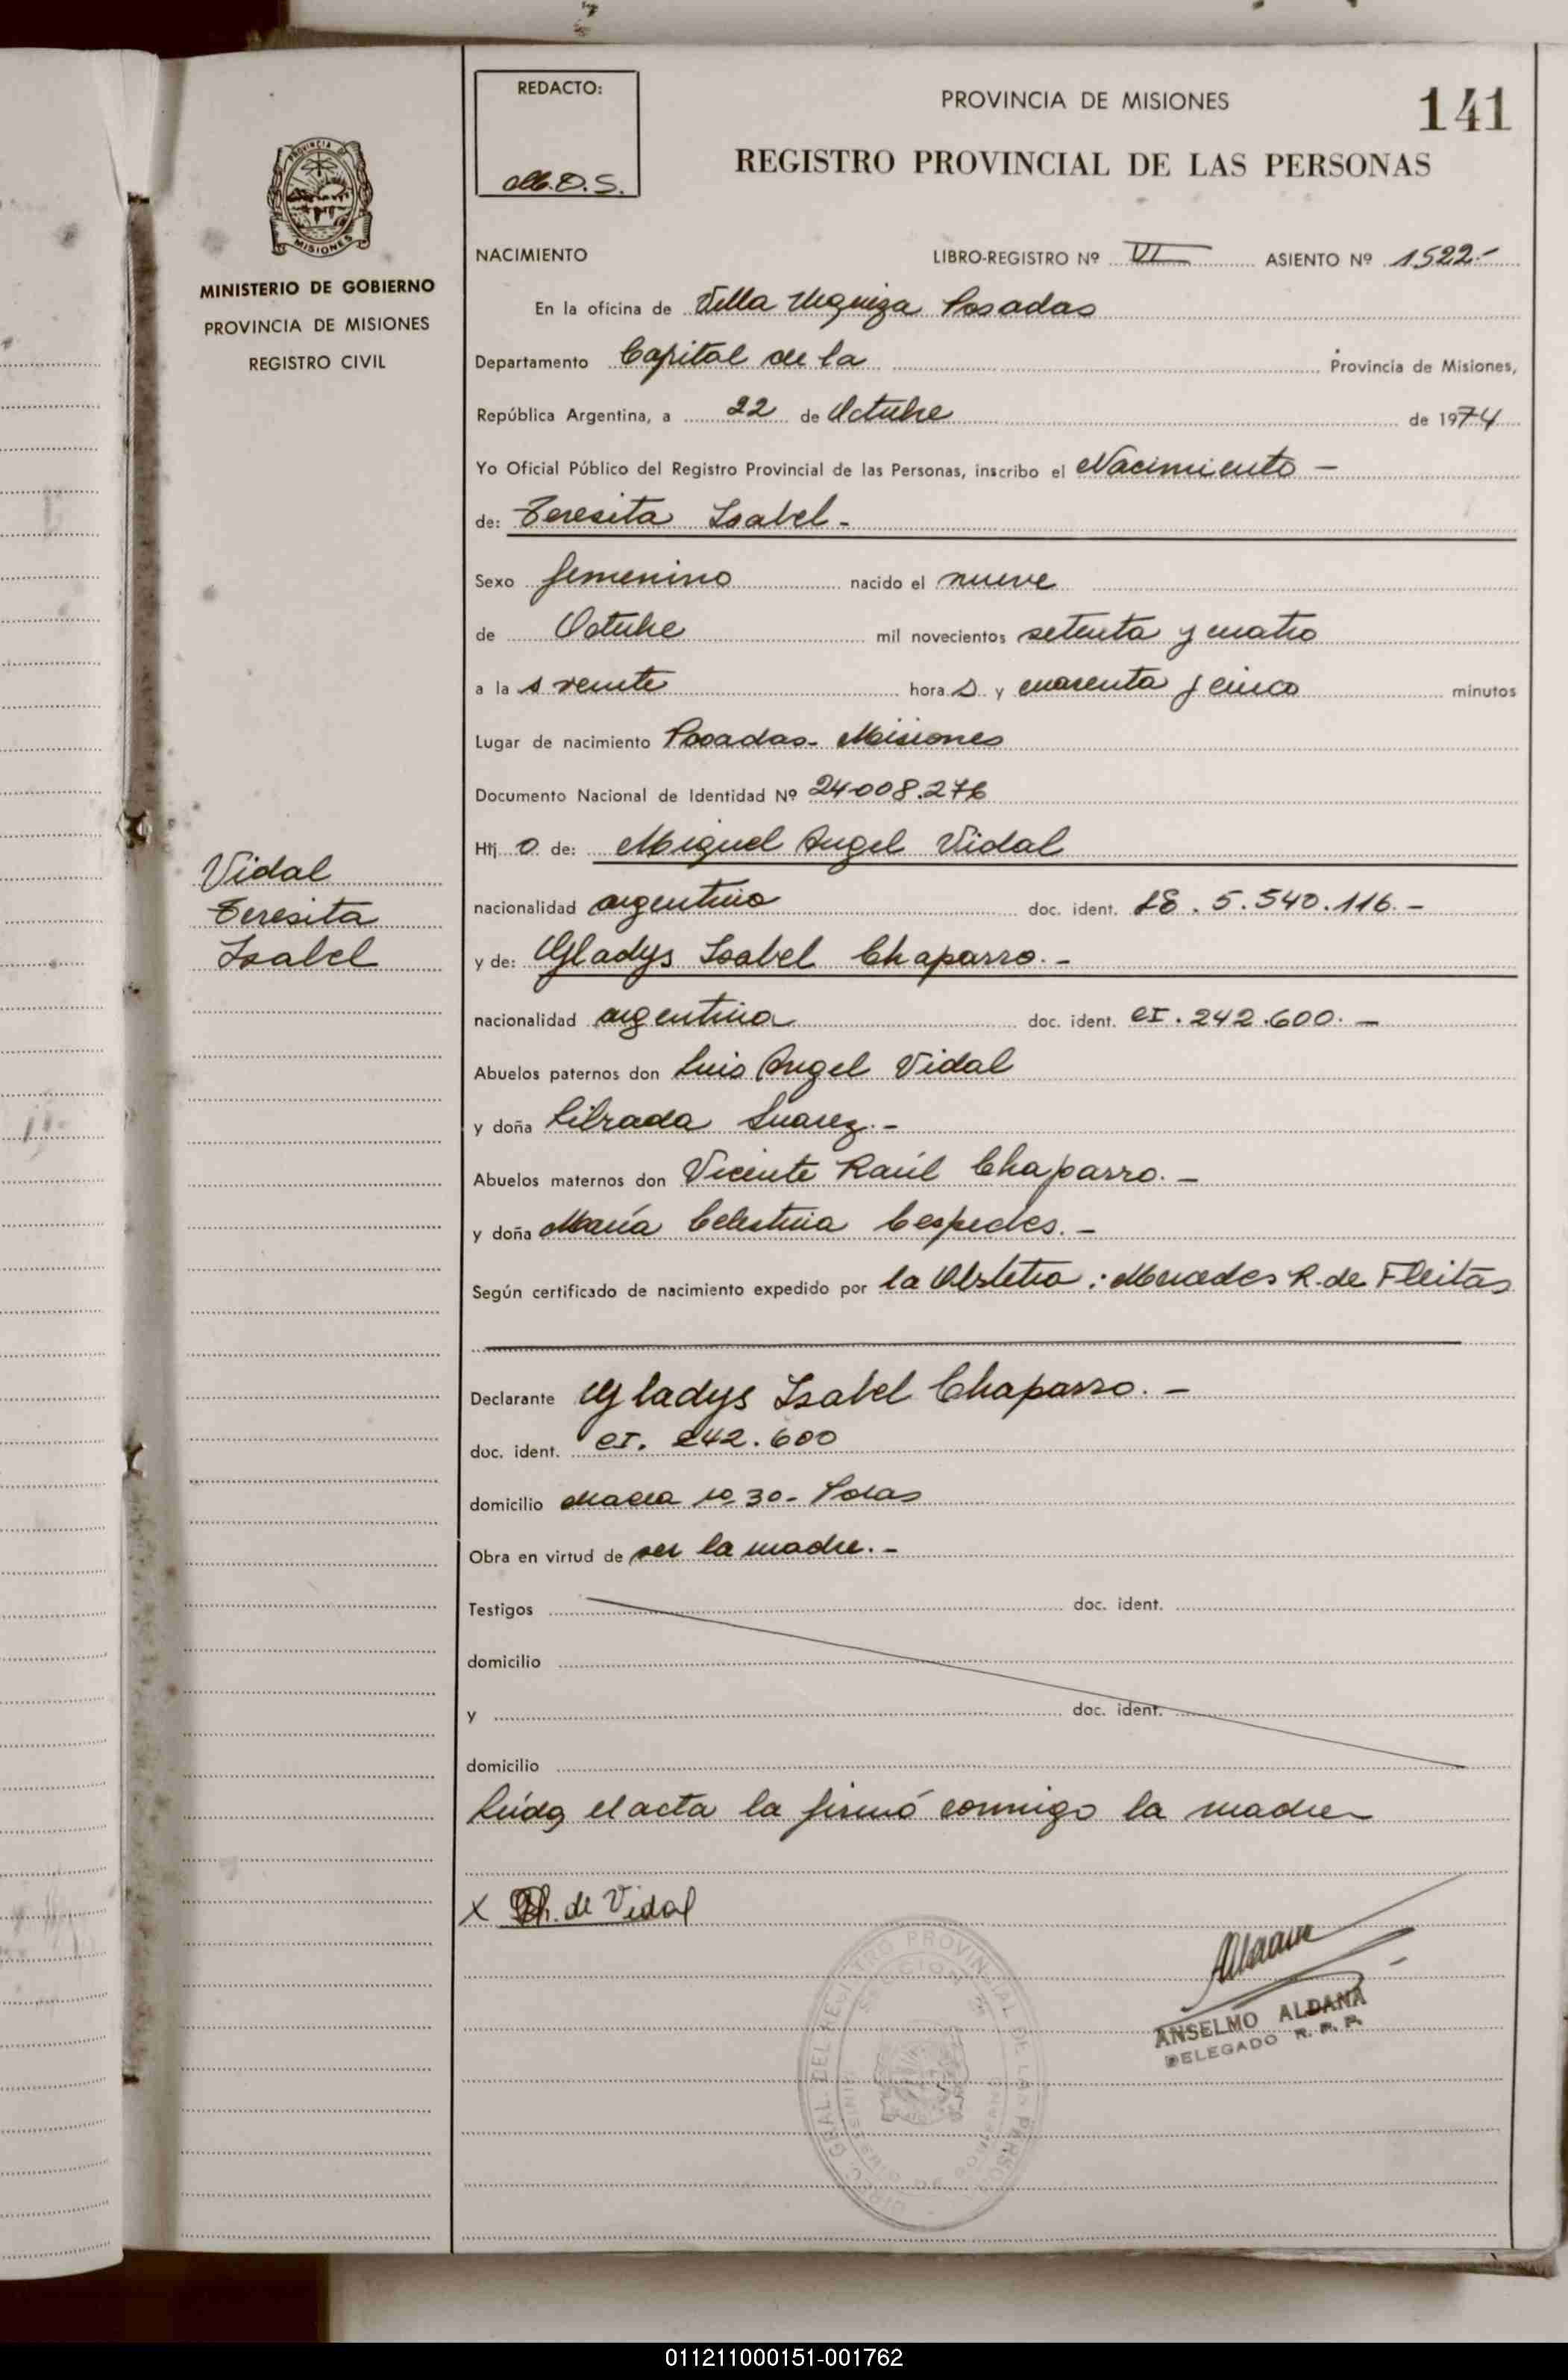 REDACTO:
PROVINCIA DE MISIONES
141
REGISTRO PROVINCIAL DE LAS PERSONAS
PROVINCIA DE
MISIONES
MINISTERIO DE GOBIERNO
PROVINCIA DE MISIONES
REGISTRO CIVIL
NACIMIENTO LIBRO-REGISTRO Nº VI ASIENTO Nº 1522.-
En la oficina de Villa Urquiza Posadas
Departamento Capital de la Provincia de Misiones,
República Argentina, a 22 de Octubre de 1974
Yo Oficial Público del Registro Provincial de las Personas, inscribo el Nacimiento -
de: Teresita Isabel -
Sexo femenino nacido el nueve
de Octubre mil novecientos setenta y cuatro
a la s veinte hora s y cuarenta y cinco minutos
Lugar de nacimiento Posadas - Misiones
Documento Nacional de Identidad Nº 24.008.276
Hij o de: Miguel Angel Vidal
Vidal
Teresita
Isabel
nacionalidad argentino doc. ident. LE. 5.540.116.-
y de: Gladys Isabel Chaparro.-
nacionalidad argentina doc. ident. CI. 242.600.-
Abuelos paternos don Luis Angel Vidal
y doña Librada Suarez.-
Abuelos maternos don Vicente Raúl Chaparro.-
y doña María Celestina Cespedes.-
Según certificado de nacimiento expedido por la Obstetra: Mercedes R. de Fleitas
Declarante Gladys Isabel Chaparro.-
doc. ident. CI. 242.600
domicilio 30 -
Obra en virtud de ser la madre.-
Testigos doc. ident.
domicilio
y doc. ident.
domicilio
Leída el acta la firmó conmigo la madre
X Ch. de Vidal
ANSELMO ALDANA
DELEGADO R. P. P.
011211000151-001762